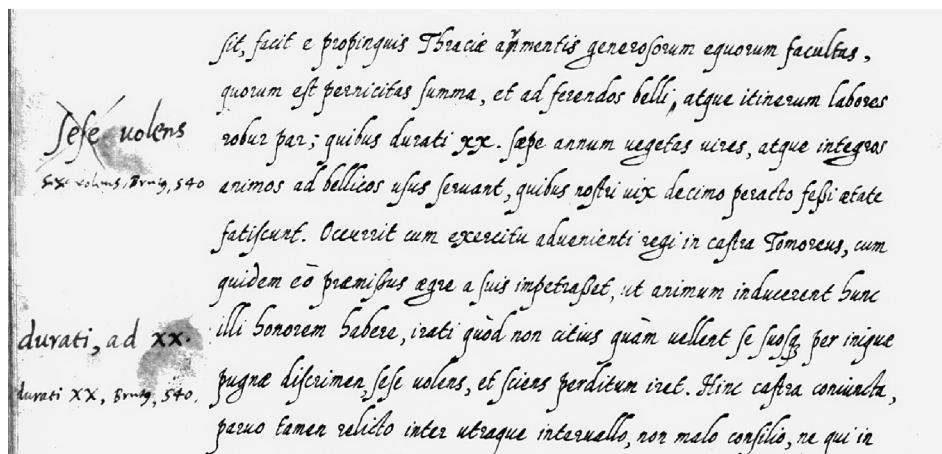 sit, facit e propinquis Thraciæ armentis generosorum equorum facultas,
quorum est pernicitas summa, et ad ferendos belli, atque itinerum labores
robur par; quibus durati xx. sæpe annum uegetas uires, atque integros
animos ad bellicos usus seruant, quibus nostri uix decimo peracto fessi ætate
fatiscunt. Occurrit cum exercitu aduenienti regi in castra Tomoreus, cum
quidem eò præmissus ægre a suis impetrasset, ut animum inducerent hunc
illi honorem habere, irati quòd non citius quàm uellent se suosq per iniquæ
pugnæ discrimen, sese uolens, et sciens perditum iret. Hinc castra coniuncta,
paruo tamen relicto inter utraque interuallo, non malo consilio, ne qui in
sese uolens
volens, Brutg, 540
durati, ad xx.
durati XX, Brutg, 540.